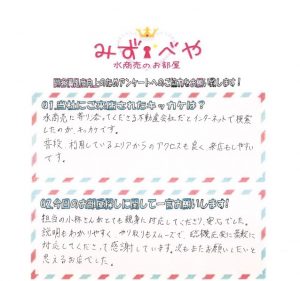 みずべや
水商売のお部屋
顧客満足向上のためアンケートへのご協力をお願い致します!
Q1.当社にご来店されたキッカケは?
水商売に寄り添ってくださる不動産会社だとインターネットで検索
したのが、キッカケです。
普段、利用しているエリアからのアクセスも良く来店もしやすい
です。
Q2.今回のお部屋探しに関して一言お願いします!
担当の小林さんがとても親身に対応してくださり、安心でした。
説明もわかりやすく、やり取りもスムーズで、細部正確に柔軟に
対応してくださって感謝しています。次もまたお願いしたいと
思えるお店でした。